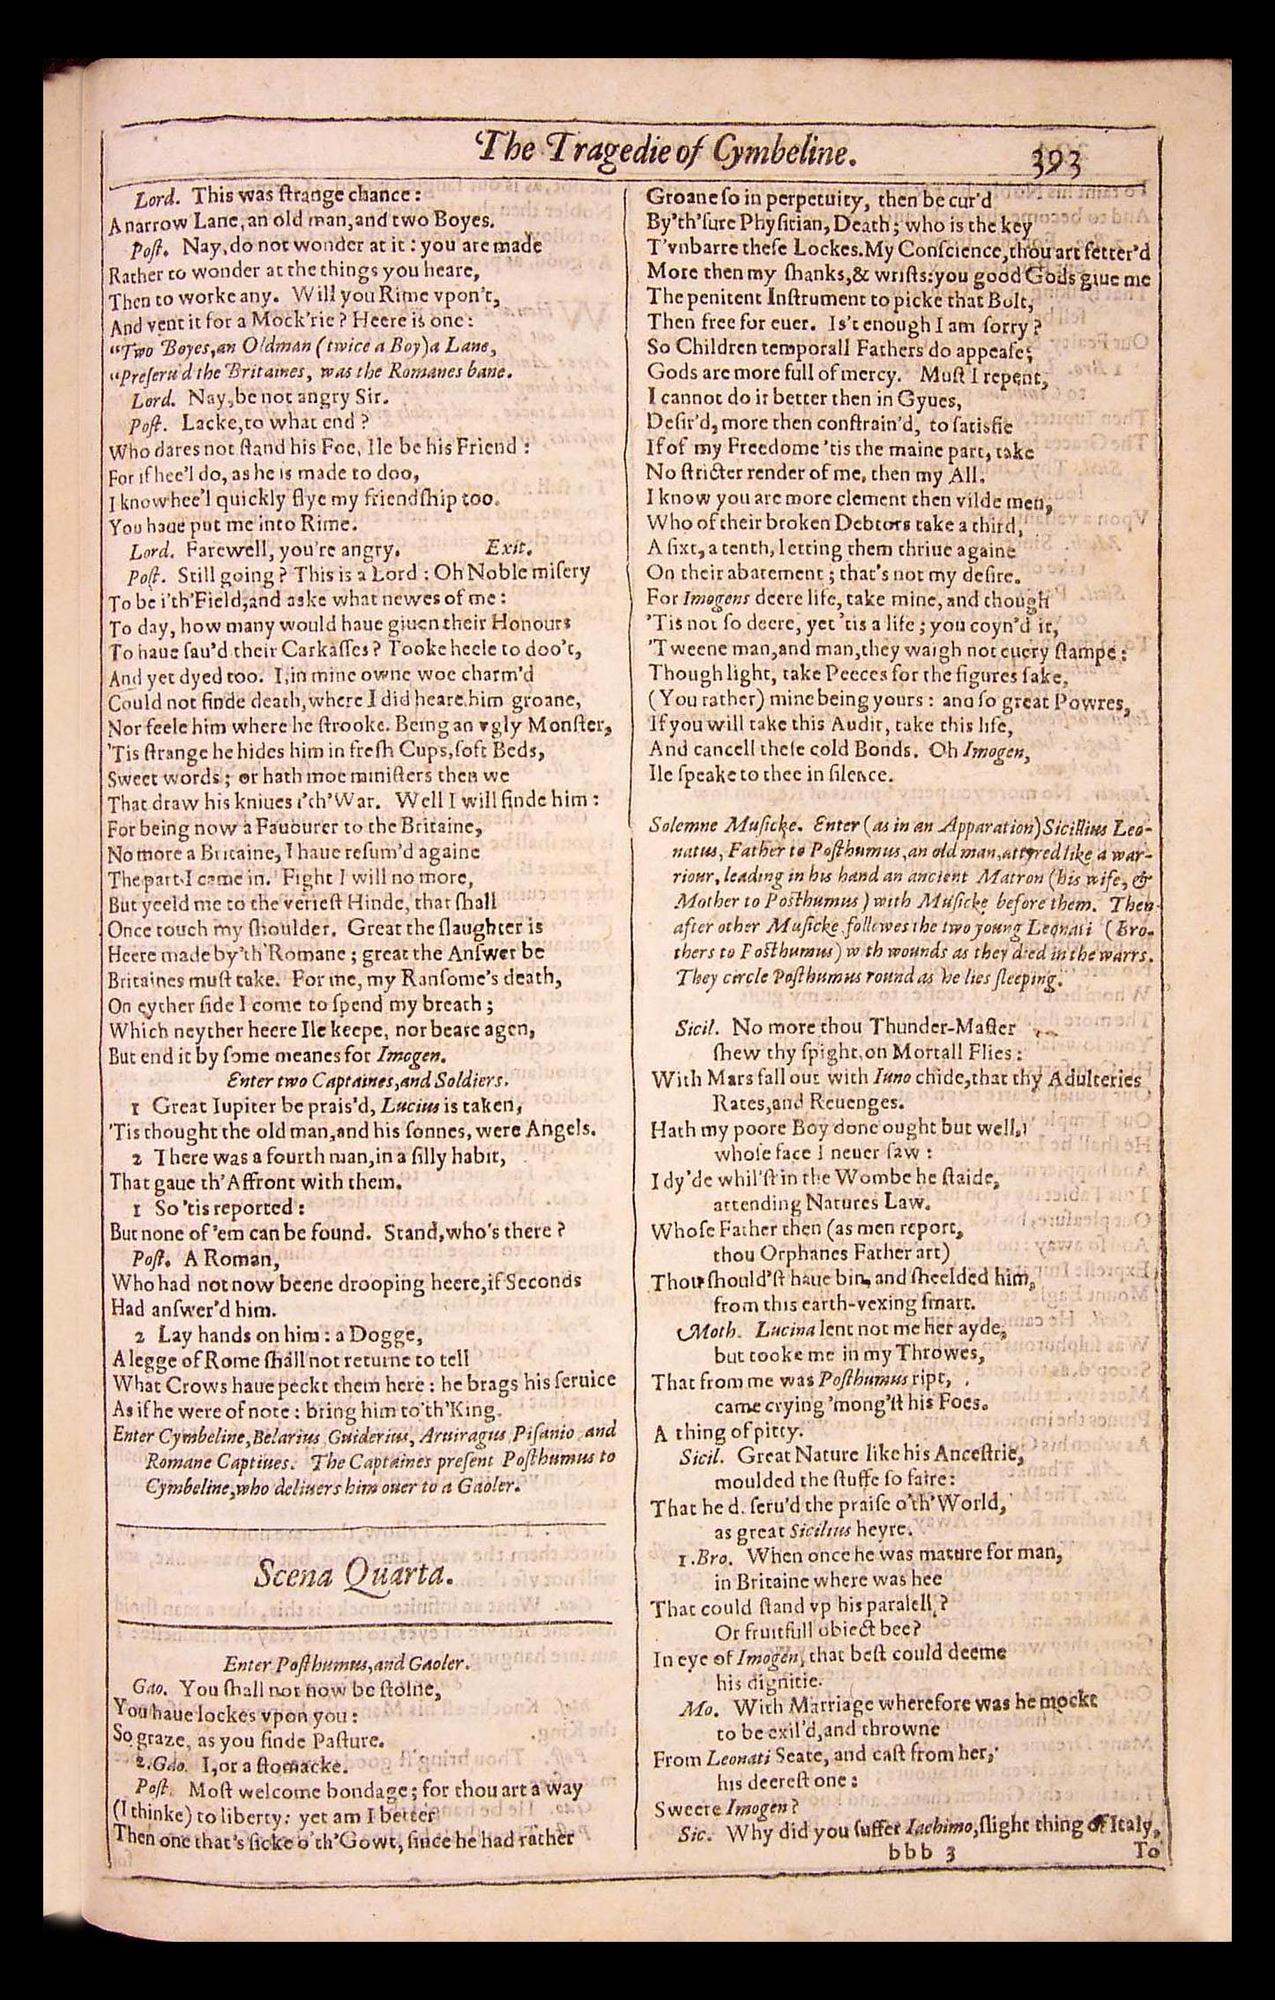 The Tragedie of Cymbeline. 393
Lord. This was ſtrange chance:
A narrow Lane, an old man, and two Boyes.
Poſt. Nay, do not wonder at it: you are made
Rather to wonder at the things you heare,
Then to worke any. Will you Rime vpon't,
And vent it for a Mock'rie? Heere is one:
“Two Boyes, an Oldman (twice a Boy) a Lane,
“Preſeru'd the Britaines, was the Romanes bane.
Lord. Nay, be not angry Sir.
Poſt. Lacke, to what end?
Who dares not ſtand his Foe, Ile be his Friend:
For if hee'l do, as he is made to doo,
I know hee'l quickly flye my friendſhip too.
You haue put me into Rime.
Lord. Farewell, you're angry. Exit.
Poſt. Still going? This is a Lord: Oh Noble miſery
To be i'th'Field, and aske what newes of me:
To day, how many would haue giuen their Honours
To haue ſau'd their Carkaſſes? Tooke heele to doo't,
And yet dyed too. I, in mine owne woe charm'd
Could not finde death, where I did heare him groane,
Nor feele him where he ſtrooke. Being an vgly Monſter,
'Tis ſtrange he hides him in freſh Cups, ſoft Beds,
Sweet words; or hath moe miniſters then we
That draw his kniues i'th'War. Well I will finde him:
For being now a Fauourer to the Britaine,
No more a Britaine, I haue reſum'd againe
The part I came in. Fight I will no more,
But yeeld me to the verieſt Hinde, that ſhall
Once touch my ſhoulder. Great the ſlaughter is
Heere made by'th'Romane; great the Anſwer be
Britaines muſt take. For me, my Ranſome's death,
On eyther ſide I come to ſpend my breath;
Which neyther heere Ile keepe, nor beare agen,
But end it by ſome meanes for Imogen.
Enter two Captaines, and Soldiers.
1 Great Iupiter be prais'd, Lucius is taken,
'Tis thought the old man, and his ſonnes, were Angels.
2 There was a fourth man, in a ſilly habit,
That gaue th'Affront with them.
1 So 'tis reported:
But none of 'em can be found. Stand, who's there?
Poſt. A Roman,
Who had not now beene drooping heere, if Seconds
Had anſwer'd him.
2 Lay hands on him: a Dogge,
A legge of Rome ſhall not returne to tell
What Crows haue peckt them here: he brags his ſeruice
As if he were of note: bring him to'th'King.
Enter Cymbeline, Belarius, Guiderius, Aruiragus, Piſanio, and
Romane Captiues. The Captaines preſent Poſthumus to
Cymbeline, who deliuers him ouer to a Gaoler.
Scena Quarta.
Enter Poſthumus, and Gaoler.
Gao. You ſhall not now be ſtolne,
You haue lockes vpon you:
So graze, as you finde Paſture.
2.Gao. I, or a ſtomacke.
Poſt. Moſt welcome bondage; for thou art a way
(I thinke) to liberty: yet am I better
Then one that's ſicke o'th'Gowt, ſince he had rather
Groane ſo in perpetuity, then be cur'd
By'th'ſure Phyſitian, Death; who is the key
T'vnbarre theſe Lockes. My Conſcience, thou art fetter'd
More then my ſhanks, & wriſts: you good Gods giue me
The penitent Inſtrument to picke that Bolt,
Then free for euer. Is't enough I am ſorry?
So Children temporall Fathers do appeaſe;
Gods are more full of mercy. Muſt I repent,
I cannot do it better then in Gyues,
Deſir'd, more then conſtrain'd, to ſatisfie
If of my Freedome 'tis the maine part, take
No ſtricter render of me, then my All.
I know you are more clement then vilde men,
Who of their broken Debtors take a third,
A ſixt, a tenth, letting them thriue againe
On their abatement; that's not my deſire.
For Imogens deere life, take mine, and though
'Tis not ſo deere, yet 'tis a life; you coyn'd it,
'Tweene man, and man, they waigh not euery ſtampe:
Though light, take Peeces for the figures ſake,
(You rather) mine being yours: and ſo great Powres,
If you will take this Audit, take this life,
And cancell theſe cold Bonds. Oh Imogen,
Ile ſpeake to thee in ſilence.
Solemne Muſicke. Enter (as in an Apparation) Sicillius Leo-
natus, Father to Poſthumus, an old man, attyred like a war-
riour, leading in his hand an ancient Matron (his wife, &
Mother to Poſthumus) with Muſicke before them. Then
after other Muſicke, followes the two young Leonati (Bro-
thers to Poſthumus) with wounds as they died in the warrs.
They circle Poſthumus round as he lies ſleeping.
Sicil. No more thou Thunder-Maſter
ſhew thy ſpight, on Mortall Flies:
With Mars fall out with Iuno chide, that thy Adulteries
Rates, and Reuenges.
Hath my poore Boy done ought but well,
whoſe face I neuer ſaw:
I dy'de whil'ſt in the Wombe he ſtaide,
attending Natures Law.
Whoſe Father then (as men report,
thou Orphanes Father art)
Thou ſhould'ſt haue bin, and ſheelded him,
from this earth-vexing ſmart.
Moth. Lucina lent not me her ayde,
but tooke me in my Throwes,
That from me was Poſthumus ript,
came crying 'mong'ſt his Foes.
A thing of pitty.
Sicil. Great Nature like his Anceſtrie,
moulded the ſtuffe ſo faire:
That he d. ſeru'd the praiſe o'th'World,
as great Sicilius heyre.
1.Bro. When once he was mature for man,
in Britaine where was hee
That could ſtand vp his paralell?
Or fruitfull obiect bee?
In eye of Imogen, that beſt could deeme
his dignitie.
Mo. With Marriage wherefore was he mockt
to be exil'd, and throwne
From Leonati Seate, and caſt from her,
his deereſt one:
Sweete Imogen?
Sic. Why did you ſuffer Iachimo, ſlight thing of Italy,
bbb 3 To